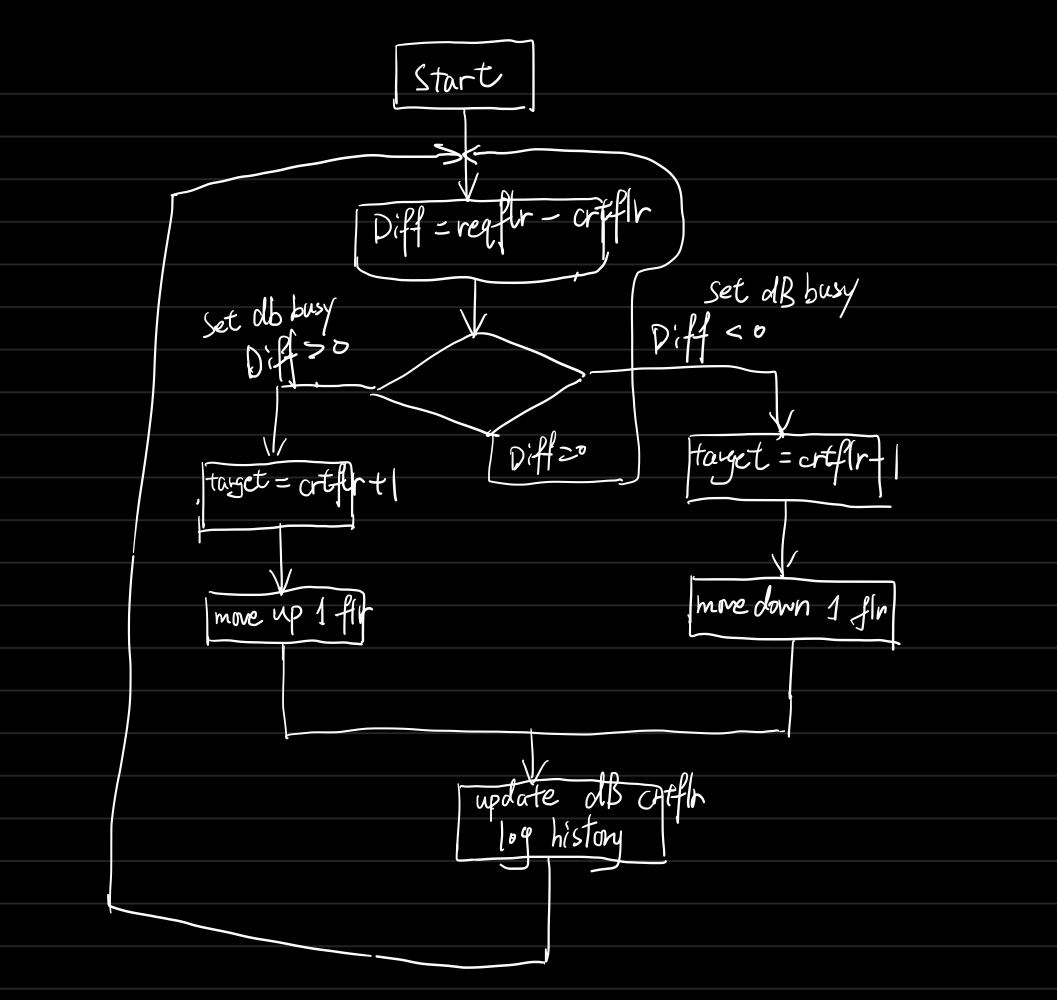 Start
Diff = reqflr - crtflr
Set dB busy
Diff < 0
Set db busy
Diff > 0
Diff=0
target = crtflr-1
target = crtflr+1
move up 1 flr
move down 1 flr
update dB crtflr
log history